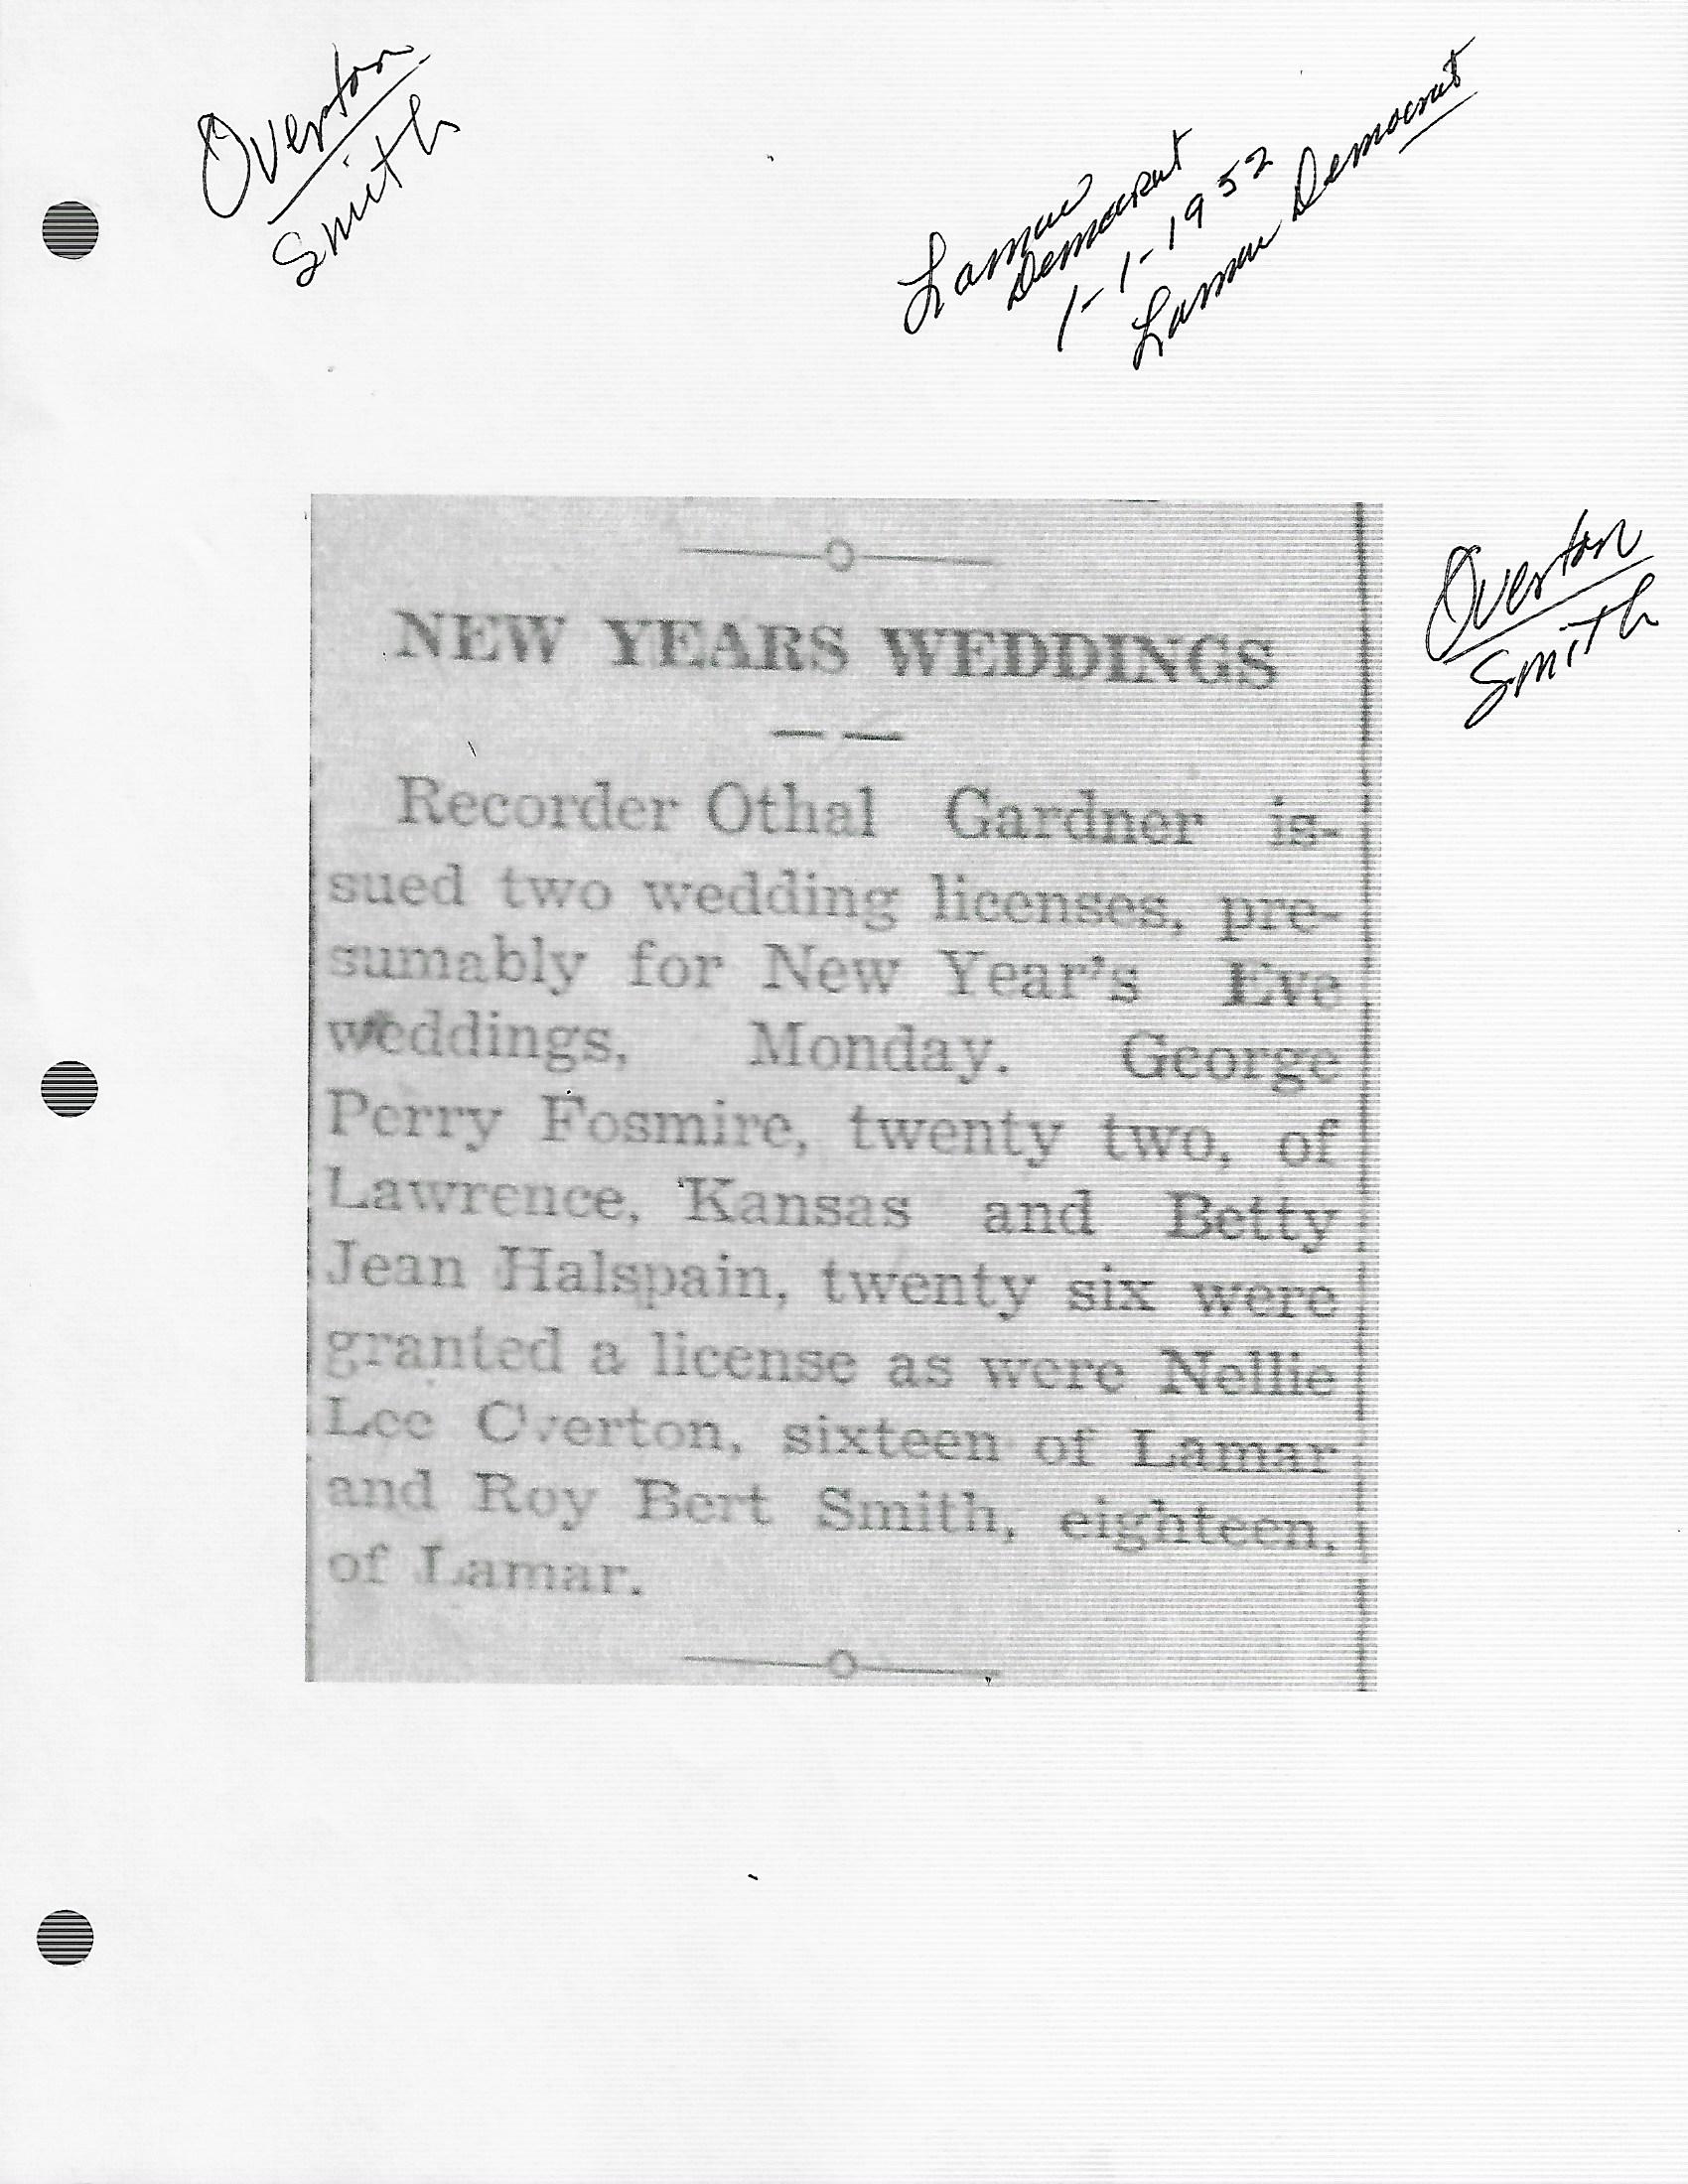 Overton
Smith
Lamar
Democrat
1-1-1952
Lamar Democrat
Overton
Smith
NEW YEARS WEDDINGS
Recorder Othal Gardner is-
sued two wedding licenses, pre-
sumably for New Year's Eve
weddings, Monday. George
Perry Fosmire, twenty two, of
Lawrence, Kansas and Betty
Jean Halspain, twenty six were
granted a license as were Nellie
Lee Overton, sixteen of Lamar
and Roy Bert Smith, eighteen,
of Lamar.